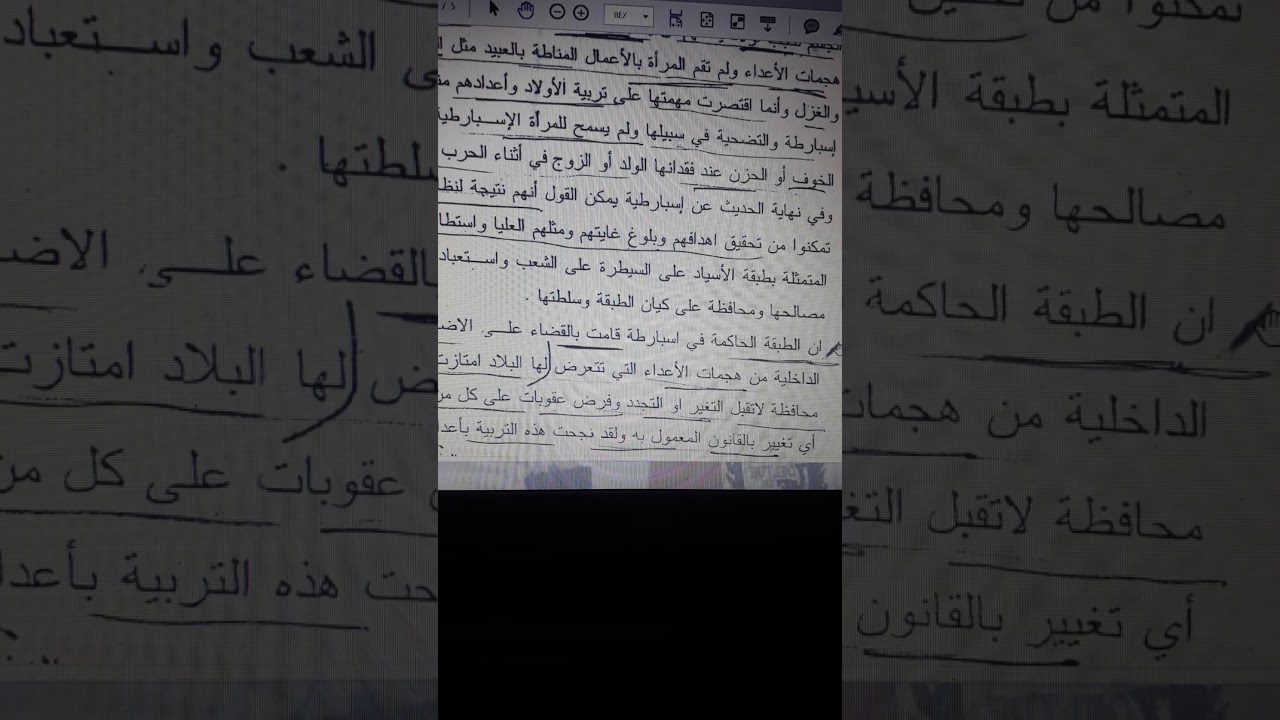 هجمات الأعداء ولم تقم المرأة بالأعمال المناطة بالعبيد مثل
والغزل وأنما اقتصرت مهمتها على تربية الأولاد وأعدادهم
إسبارطة والتضحية في سبيلها ولم يسمح للمرأة الإسبارطية
الخوف أو الحزن عند فقدانها الولد أو الزوج في أثناء الحرب
وفي نهاية الحديث عن إسبارطية يمكن القول أنهم نتيجة
تمكنوا من تحقيق اهدافهم وبلوغ غايتهم ومثلهم العليا
المتمثلة بطبقة الأسياد على السيطرة على الشعب واستعباد
مصالحها ومحافظة على كيان الطبقة وسلطتها .
ان الطبقة الحاكمة في اسبارطة قامت بالقضاء على
الداخلية من هجمات الأعداء التي تتعرض لها البلاد امتازت
محافظة لاتقبل التغير او التجدد وفرض عقوبات على كل
أي تغيير بالقانون المعمول به ولقد نجحت هذه التربية